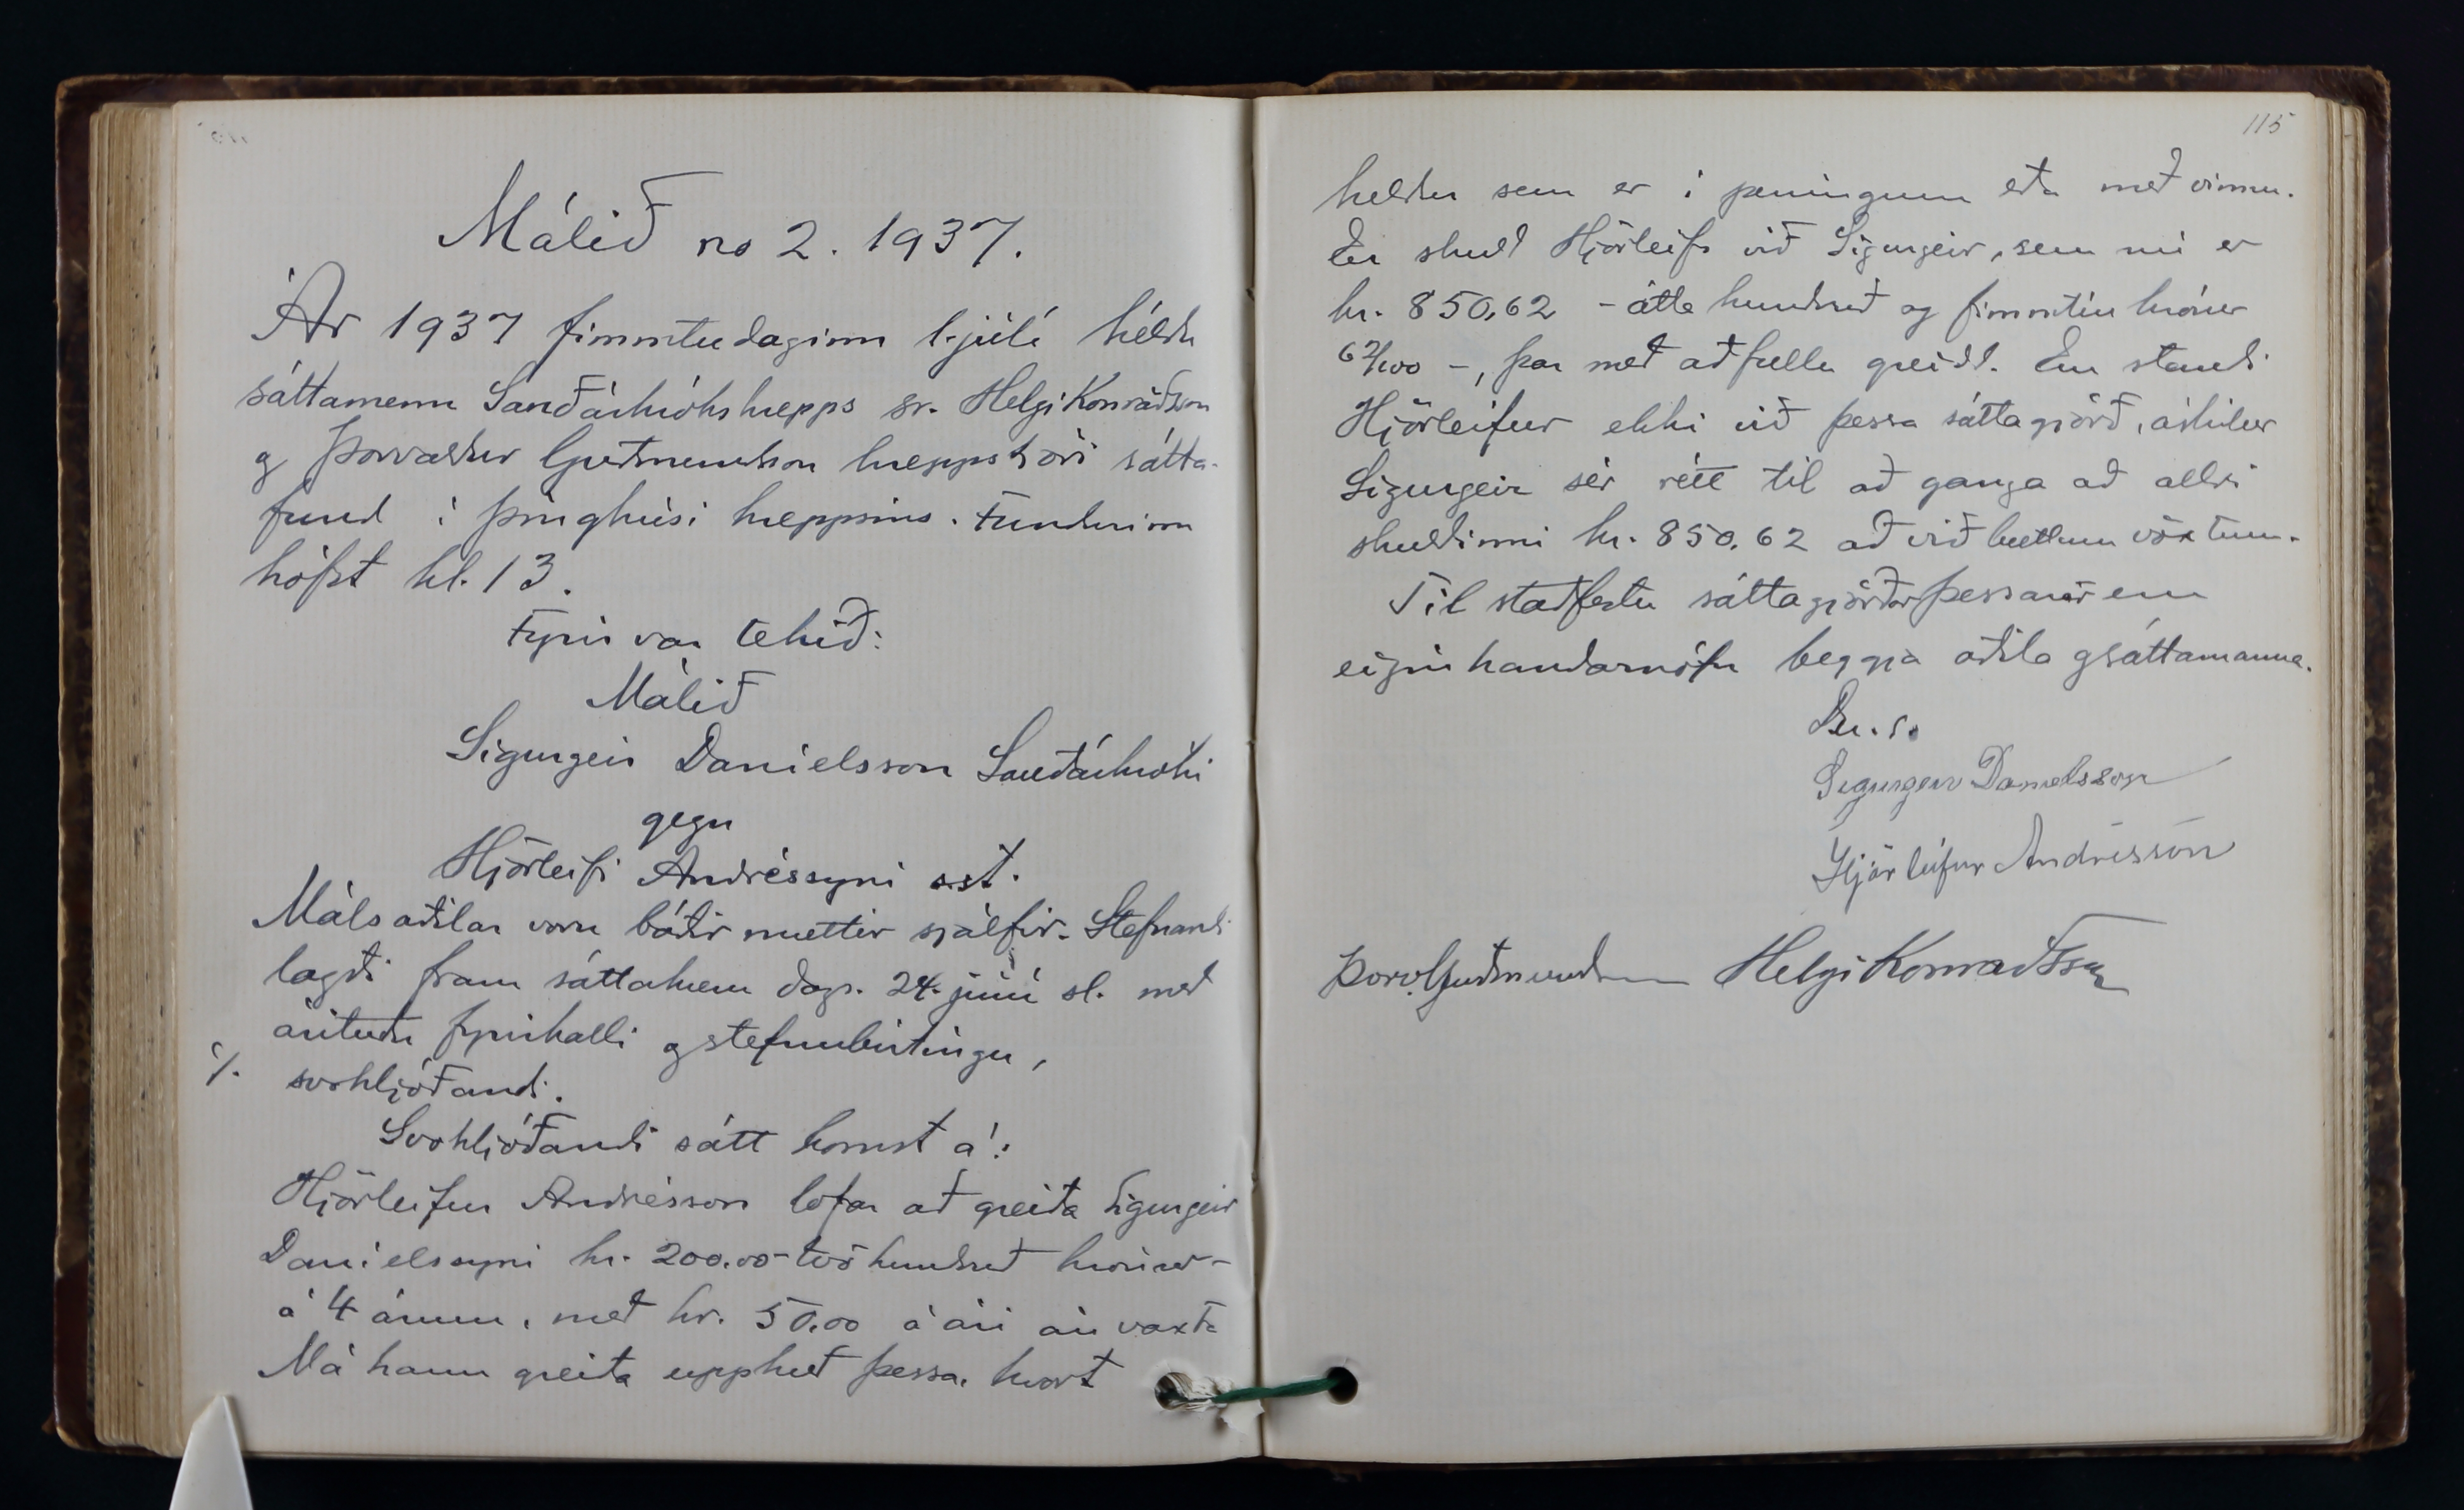 Málið no 2. 1937.
Ár 1937 fimmtudaginn 1. júlí héldu
sáttamenn Sauðárkrókshrepps sr. Helgi Konráðsson
og Þorvaldur Guðmundsson hreppstjóri sátta-
fund í þinghúsi hreppsins. Fundurinn
hófst kl. 13.
Fyrir var tekið:
Málið
Sigurgeir Daníelsson Sauðárkróki
gegn
Hjörleifi Andréssyni s.st.
Málsaðilar voru báðir mættir sjálfir. Stefnandi
lagði fram sáttakæru dags. 24. júní sl. með
árituðu fyrirkalli og stefnubirtingu,
·/. svohljóðandi.
Svohljóðandi sátt komst á:
Hjörleifur Andrésson lofar að greiða Sigurgeir
Daníelssyni kr. 200.00 - tvö hundruð krónur -
á 4 árum, með kr. 50.00 á ári án vaxta
Má hann greiða upphæð þessa, hvort
115
heldur sem er í peningum eða með vinnu.
Er skuld Hjörleifs við Sigurgeir, sem nú er
kr. 850,62 - átta hundruð og fimmtíu krónur
62/100 -, þar með að fullu greidd. En standi
Hjörleifur ekki við þessa sáttagjörð, áskilur
Sigurgeir sér rétt til að ganga að allri
skuldinni kr. 850.62 að viðbættum vöxtum.
Til staðfestu sáttagjörðar þessarar eru
eiginhandarnöfn beggja aðila og sáttamanna.
D.u.s.
Sigurgeir Daníelsson
Hjörleifur Andrésson
Þorv. Guðmundsson Helgi Konráðsson